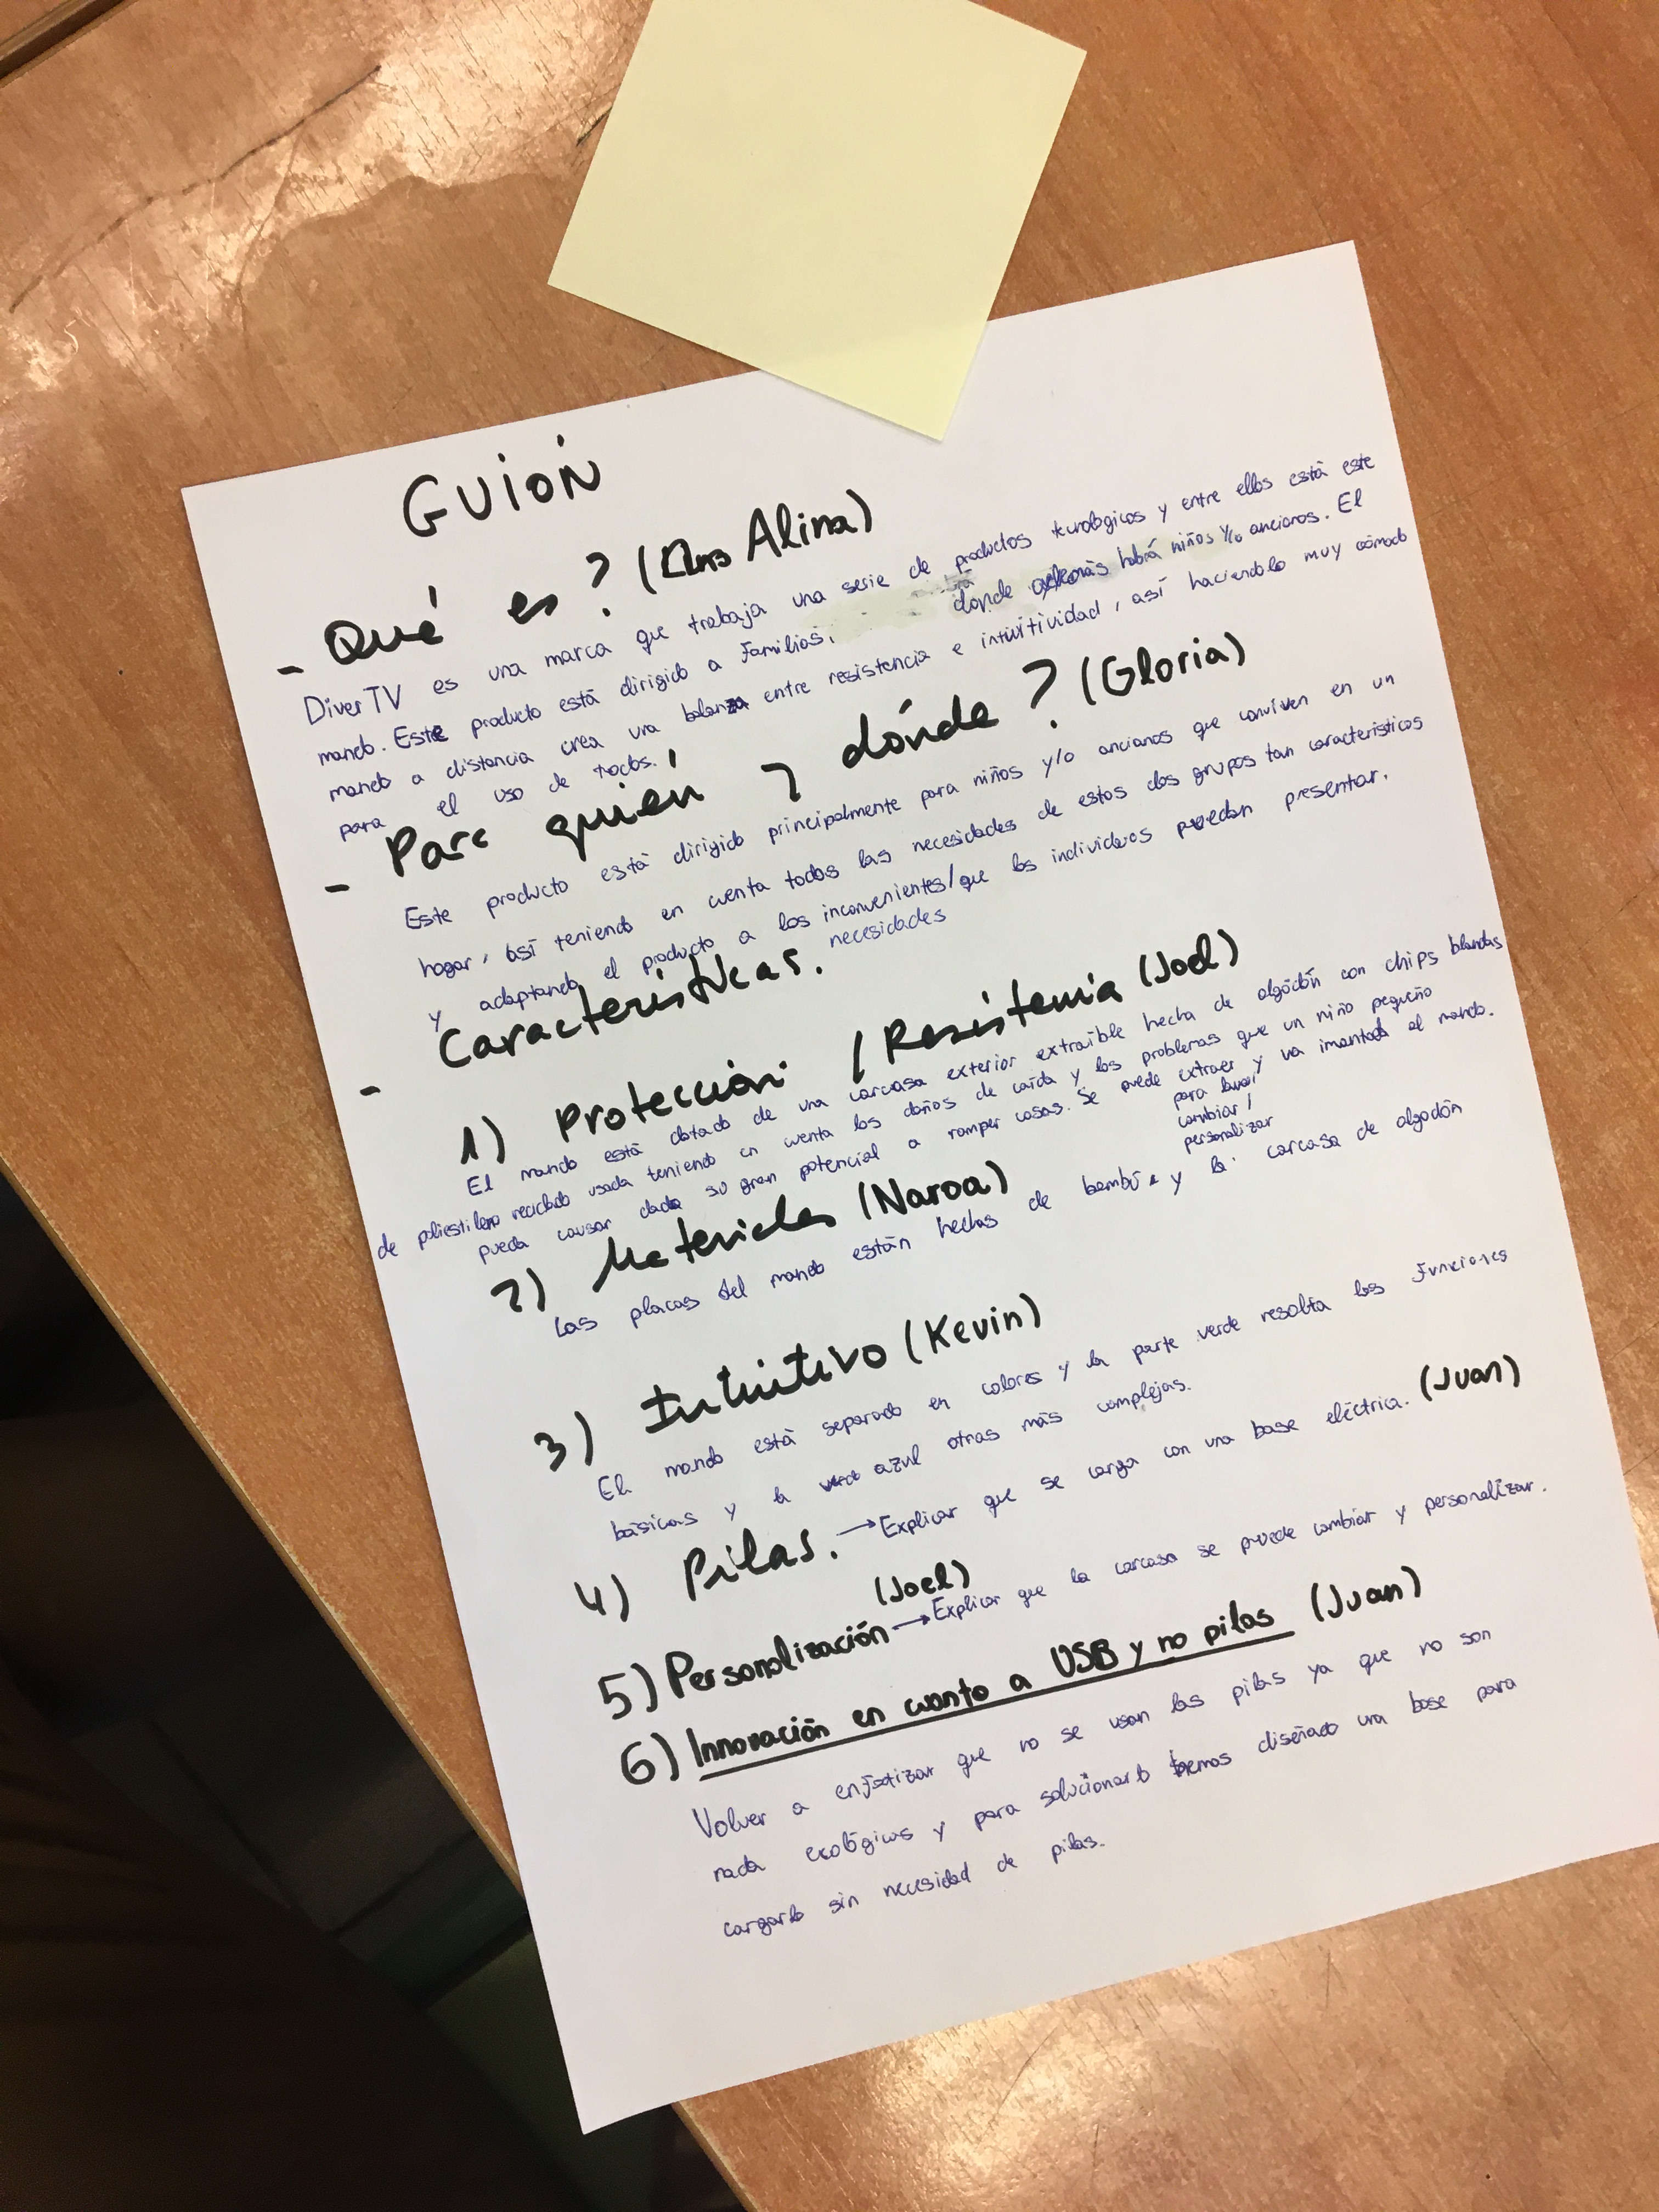 GUIÓN
- Qué es? (Alina)
DiverTV es una marca que trabaja una serie de productos tecnológicos y entre ellos está este
mando. Este producto está dirigido a familias, donde además habrá niños y/o ancianos. El
mando a distancia crea una balanza entre resistencia e intuitividad, así haciendolo muy cómodo
para el uso de todos.
- Para quién y dónde? (Gloria)
Este producto está dirigido principalmente para niños y/o ancianos que conviven en un
hogar, así teniendo en cuenta todas las necesidades de estos dos grupos tan característicos
y adaptando el producto a los inconvenientes/que los individuos puedan presentar.
necesidades
- Características.
1) Protección / Resistencia (Joel)
El mando está dotado de una carcasa exterior extraíble hecha de algodón con chips blandas
de poliestileno reciclado usada teniendo en cuenta los daños de caída y los problemas que un niño pequeño
pueda causar dado su gran potencial a romper cosas. Se puede extraer y va imantada al mando.
para lavar/
cambiar/
personalizar
2) Materiales (Naroa)
Las placas del mando están hechas de bambú y la carcasa de algodón
3) Intuitivo (Kevin)
El mando está separado en colores y la parte verde resalta las funciones
básicas y la azul otras más complejas.
4) Pilas. → Explicar que se carga con una base eléctrica. (Juan)
(Joel)
5) Personalización → Explicar que la carcasa se puede cambiar y personalizar.
6) Innovación en cuanto a USB y no pilas (Juan)
Volver a enfatizar que no se usan las pilas ya que no son
nada ecológicas y para solucionarlo hemos diseñado una base para
cargarlo sin necesidad de pilas.